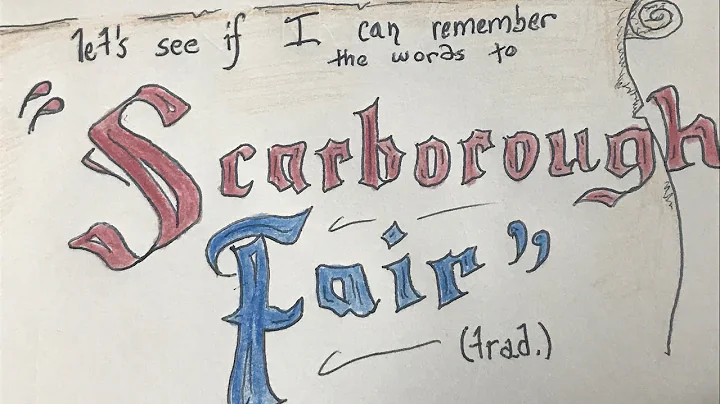 let's see if I can remember
the words to
"Scarborough
Fair"
(trad.)